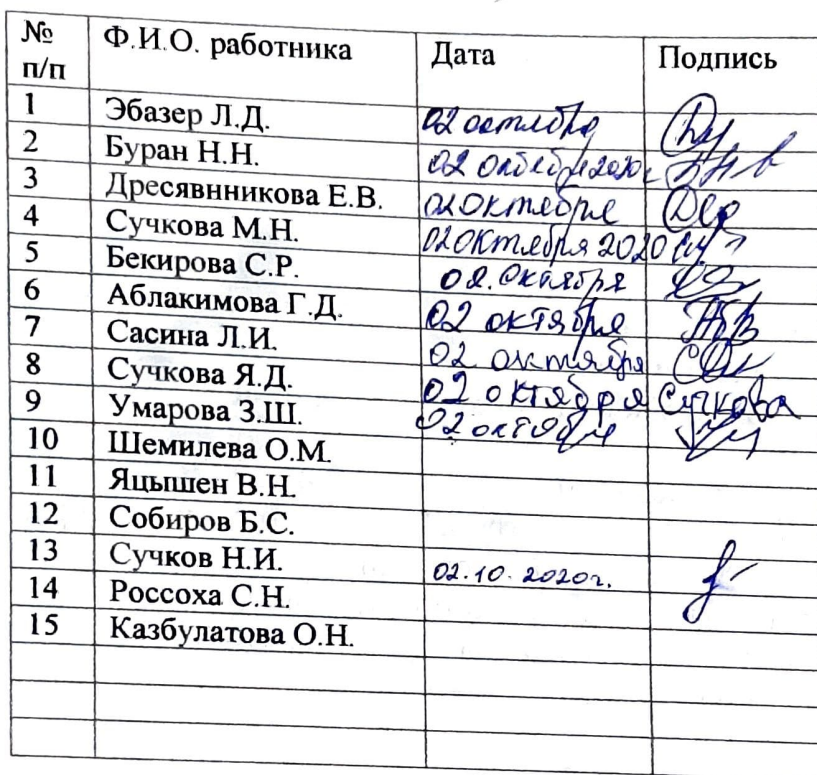 № п/п Ф.И.О. работника Дата Подпись
1 Эбазер Л.Д. 02 октября
2 Буран Н.Н. 02 октября 2020г
3 Дресявнникова Е.В. 02 октября
4 Сучкова М.Н. 02 октября 2020
5 Бекирова С.Р. 02. октября
6 Аблакимова Г.Д. 02 октября
7 Сасина Л.И. 02 октября
8 Сучкова Я.Д. 02 октября Сучкова
9 Умарова З.Ш. 02 октября
10 Шемилева О.М.
11 Яцышен В.Н.
12 Собиров Б.С.
13 Сучков Н.И. 02.10.2020г.
14 Россоха С.Н.
15 Казбулатова О.Н.